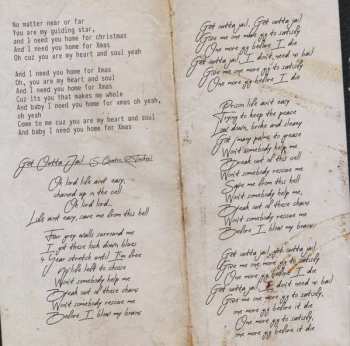 No matter near or far
You are my guiding star,
and I need you home for christmas
And I need you home for Xmas
Oh cuz you are my heart and soul yeah
And I need you home for Xmas
Oh, you are my heart and soul
And I need you home for Xmas
Cuz its you that makes me whole
And baby I need you home for xmas oh yeah,
oh yeah
Come to me cuz you are my heart and soul
And baby I need you home for Xmas
Got Outta Jail
Oh lord life aint easy,
chained up in the cell
Oh lord lord..
Life aint easy, save me from this hell
Four grey walls surround me
I got these lock down blues
4 Year stretch until I'm free
My life left to choose
Wont somebody help me
Break out of these chains
Won't somebody rescue me
Before I blow my brains
Got outta jail, Got outta jail
Give me one more go to satisfy
One more go before I die
Got outta jail I don't need no bail
Give me one more go to satisfy
One more go before I die
Prison life aint easy
Trying to keep the peace
Low down, broke and
Got many palms to grease
Won't somebody help me
Break out of this cell
Won't somebody rescue me
Save me from this hell
Won't somebody help me,
Break out of these chains
Won't somebody rescue me
Before I blow my brains
Got outta jail, got outta jail
Give me one more go to satisfy
One more go before I die
Got outta jail I don't need no bail
Give me one more go to satisfy,
one more go before it die
One more go to satisfy,
one more go before it die